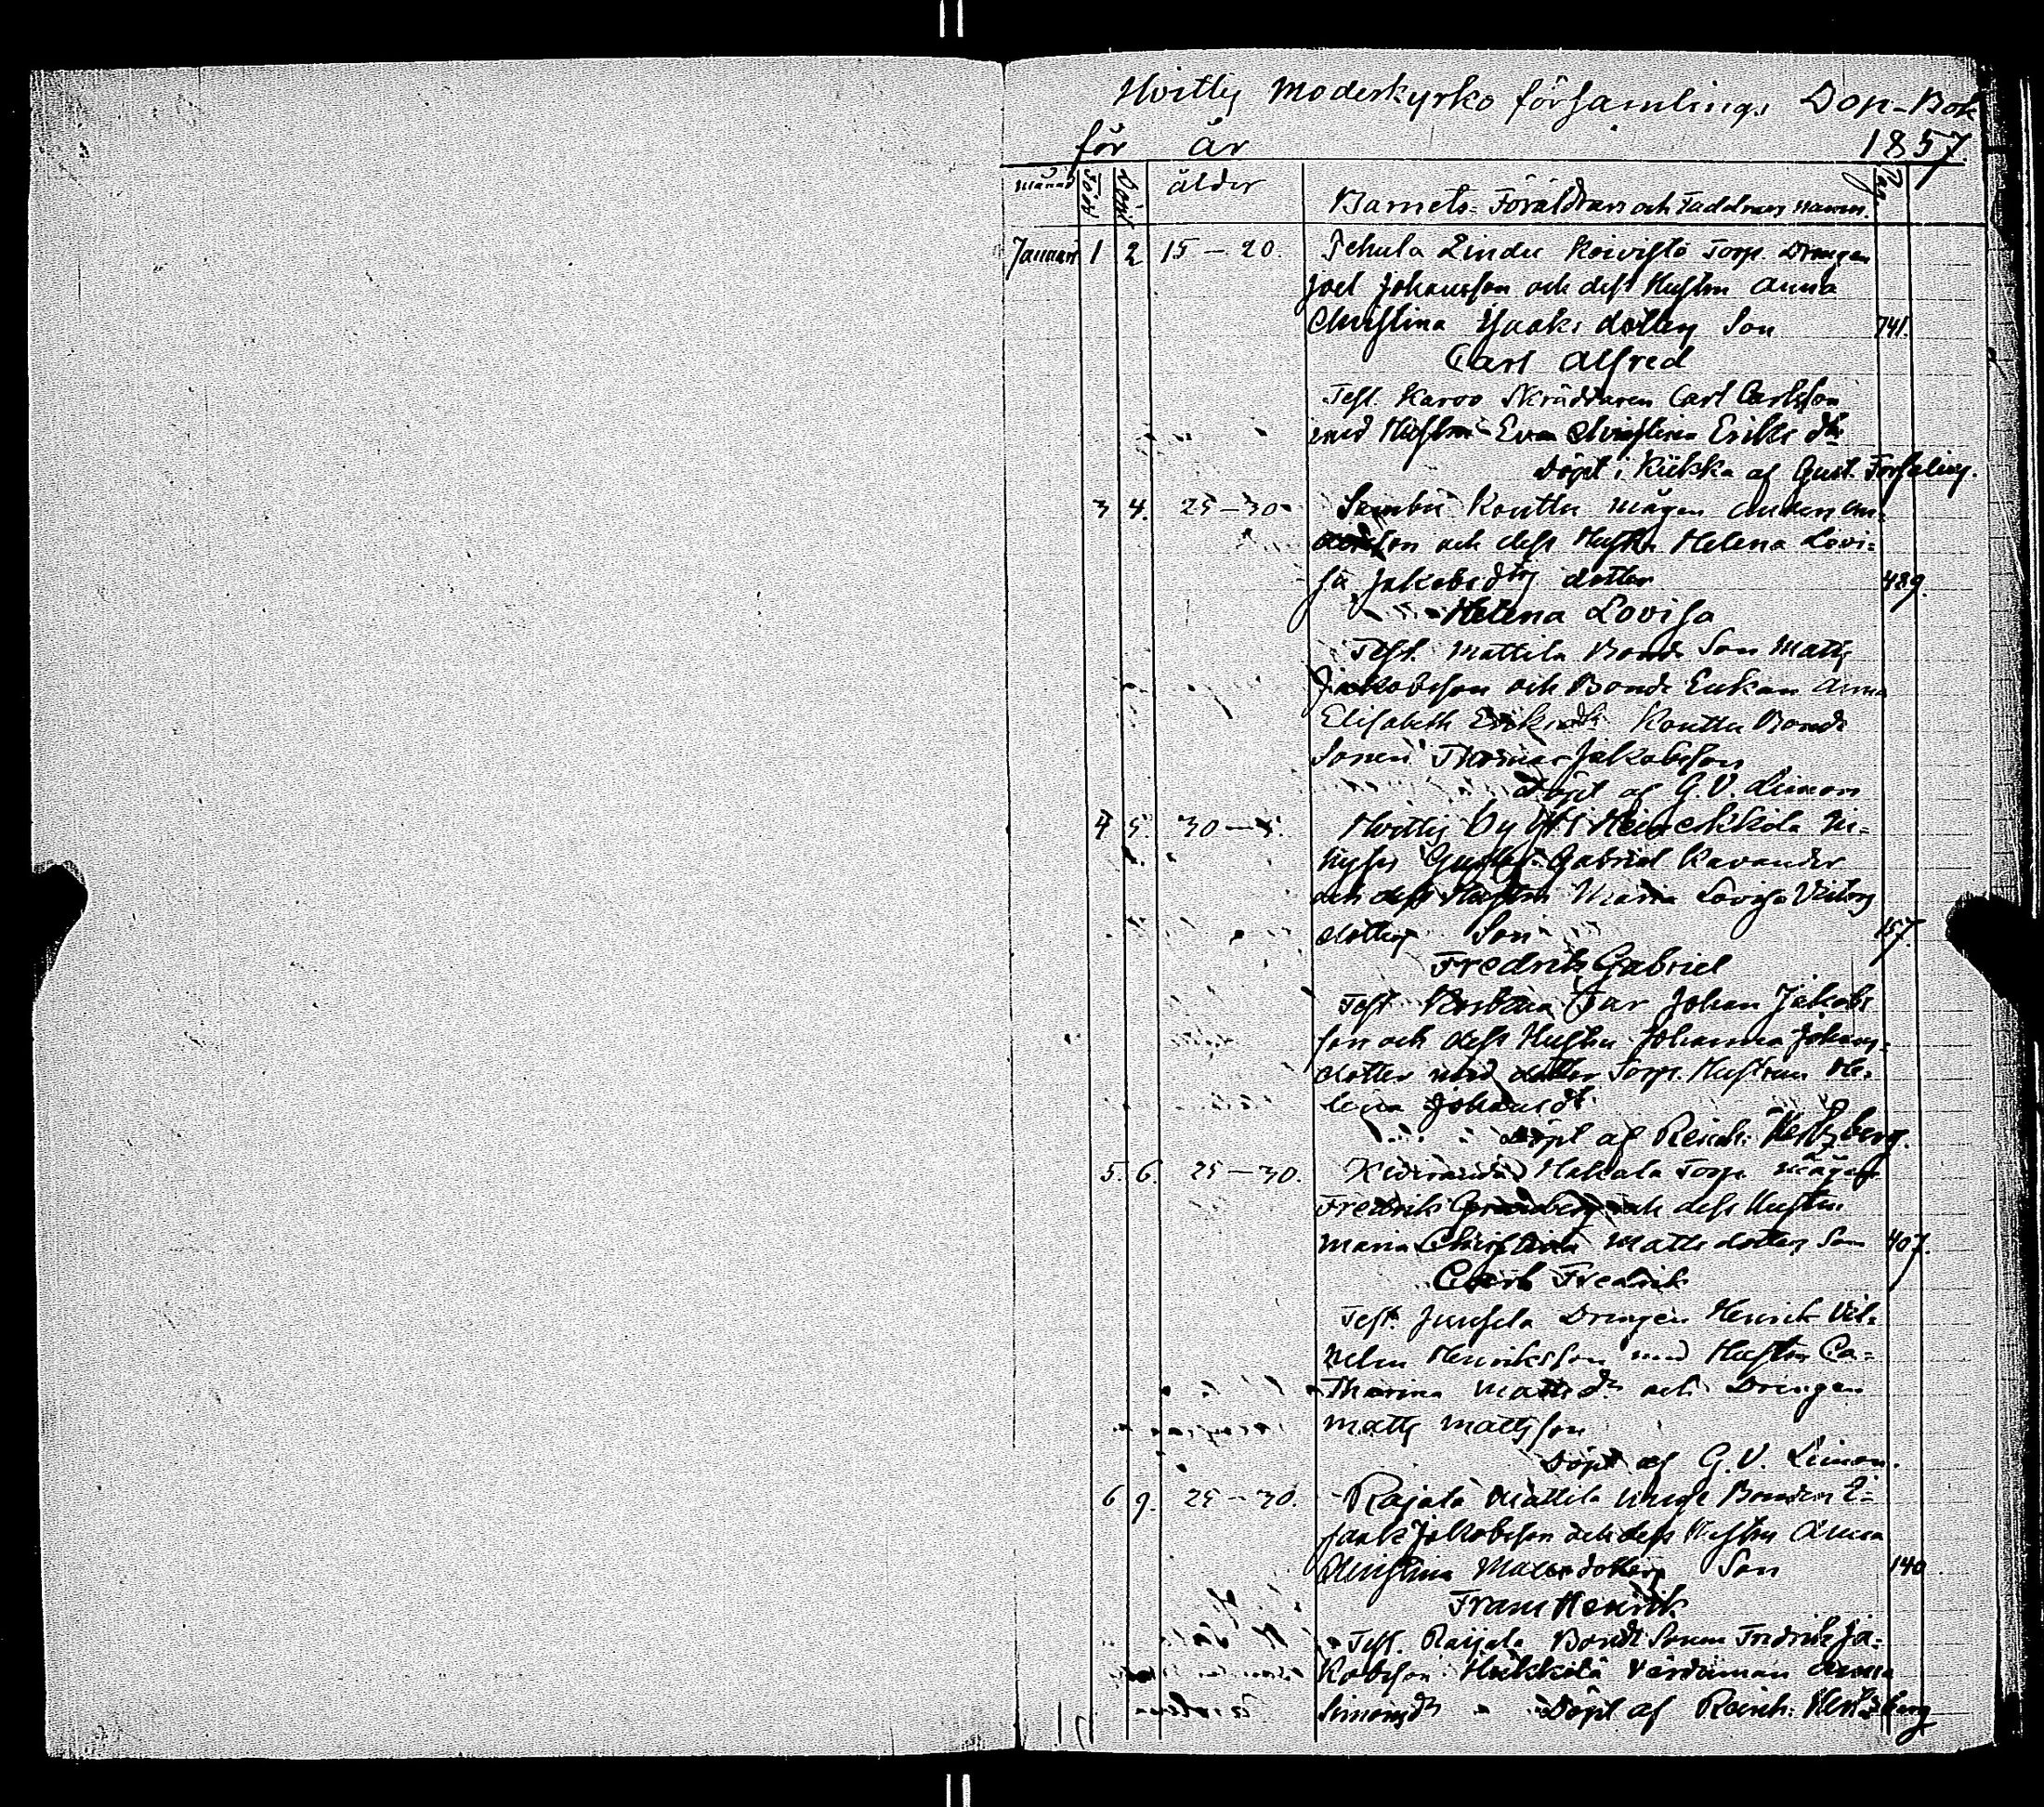 Hvittis Moderkyrko församlings Dop-Bok
för år 1857.
månad Född Döpt ålder Barnets Föräldrars och Faddrars namn. Pag.
Januari 1 2 15 — 20. Torp. Drengen
Joel Johansson och dess Hustru Anna
Christina Isaks dotters Son 741.
Carl Alfred
Test. Karoo Skräddaren Carl Carlsson
med Hustru Eva Christina Eriks dtr
Döpt i Kiikka af Gust.
3 4. 25 — 30. Kouttu mågen
och dess Hustru Helena Lovi=
sa Jakobsdtrs dotter 489.
Helena Lovisa
Test. Mattila Bonde Son Matts
Jakobsson och Bonde Enkan Anna
Elisabeth Eriksdtr Kouttu Bonde
Sonen Thomas Jakobsson
Döpt af G. V. Limon
4 5 30 — Hvittis by
Gustaf Gabriel Kavander
och dess Hustru Maria Lovisa
dotters Son 157.
Fredrik Gabriel
Test. Far Johan Jakobs
son och dess Hustru Johanna Johans=
dotter med dotter Torp. Hustrun He=
lena Johansdt
Döpt af Reinh: Hertzberg.
5. 6. 25 — 30. Hakala Torp. mågen
Fredrik och dess Hustru
Maria Christina Matts dotters Son 407.
Carl Fredrik
Test. Junsela Drengen Henrik Vil=
helm Henriksson med Hustru Ca=
tharina Matts dr och Drengen
Matts Mattsson
Döpt af G. V. Limon.
6 9. 25 — 30. Raijala Mattila Bonden I=
saak Jakobsson och dess Hustru Anna
Christina dotters Son 140.
Frans Henrik
Test. Raijala Bonde Sonen Fredrik Ja=
kobsson Heikkilä Värdinnan Anna
Simonsdr Döpt af Reinh: Hertzberg